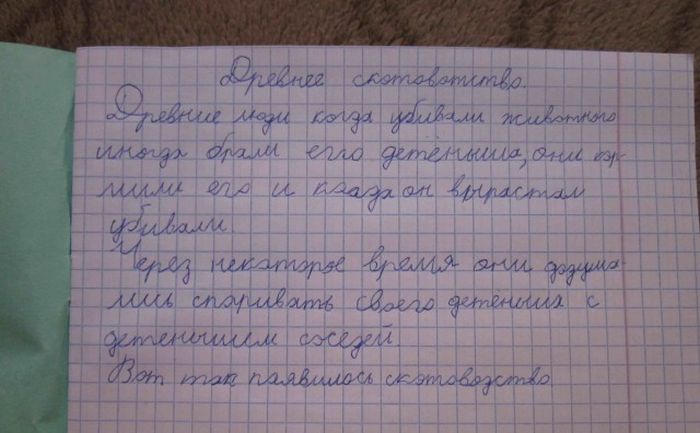 Древнее скотоводство.
Древние люди когда убивали животного
иногда брали его детёныша, они кор-
мили его и когда он вырастал
убивали.
Через некоторое время они додума-
лись спаривать своего детёныша с
детенышем соседей.
Вот так паявилось скотоводство